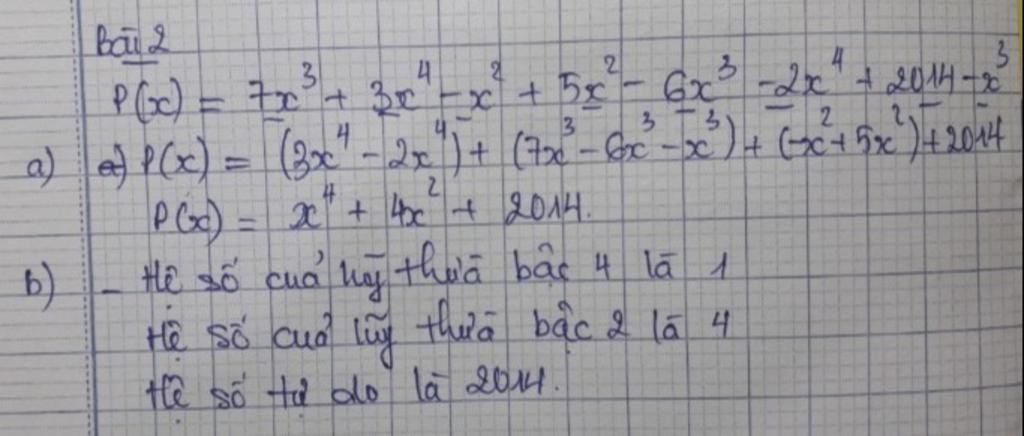 Bài 2
P(x) = 7x³ + 3x⁴ - x² + 5x² - 6x³ - 2x⁴ + 2014 - x³
a) P(x) = (3x⁴ - 2x⁴) + (7x³ - 6x³ - x³) + (-x² + 5x²) + 2014
P(x) = x⁴ + 4x² + 2014.
b) - Hệ số của lũy thừa bậc 4 là 1
Hệ số của lũy thừa bậc 2 là 4
Hệ số tự do là 2014.